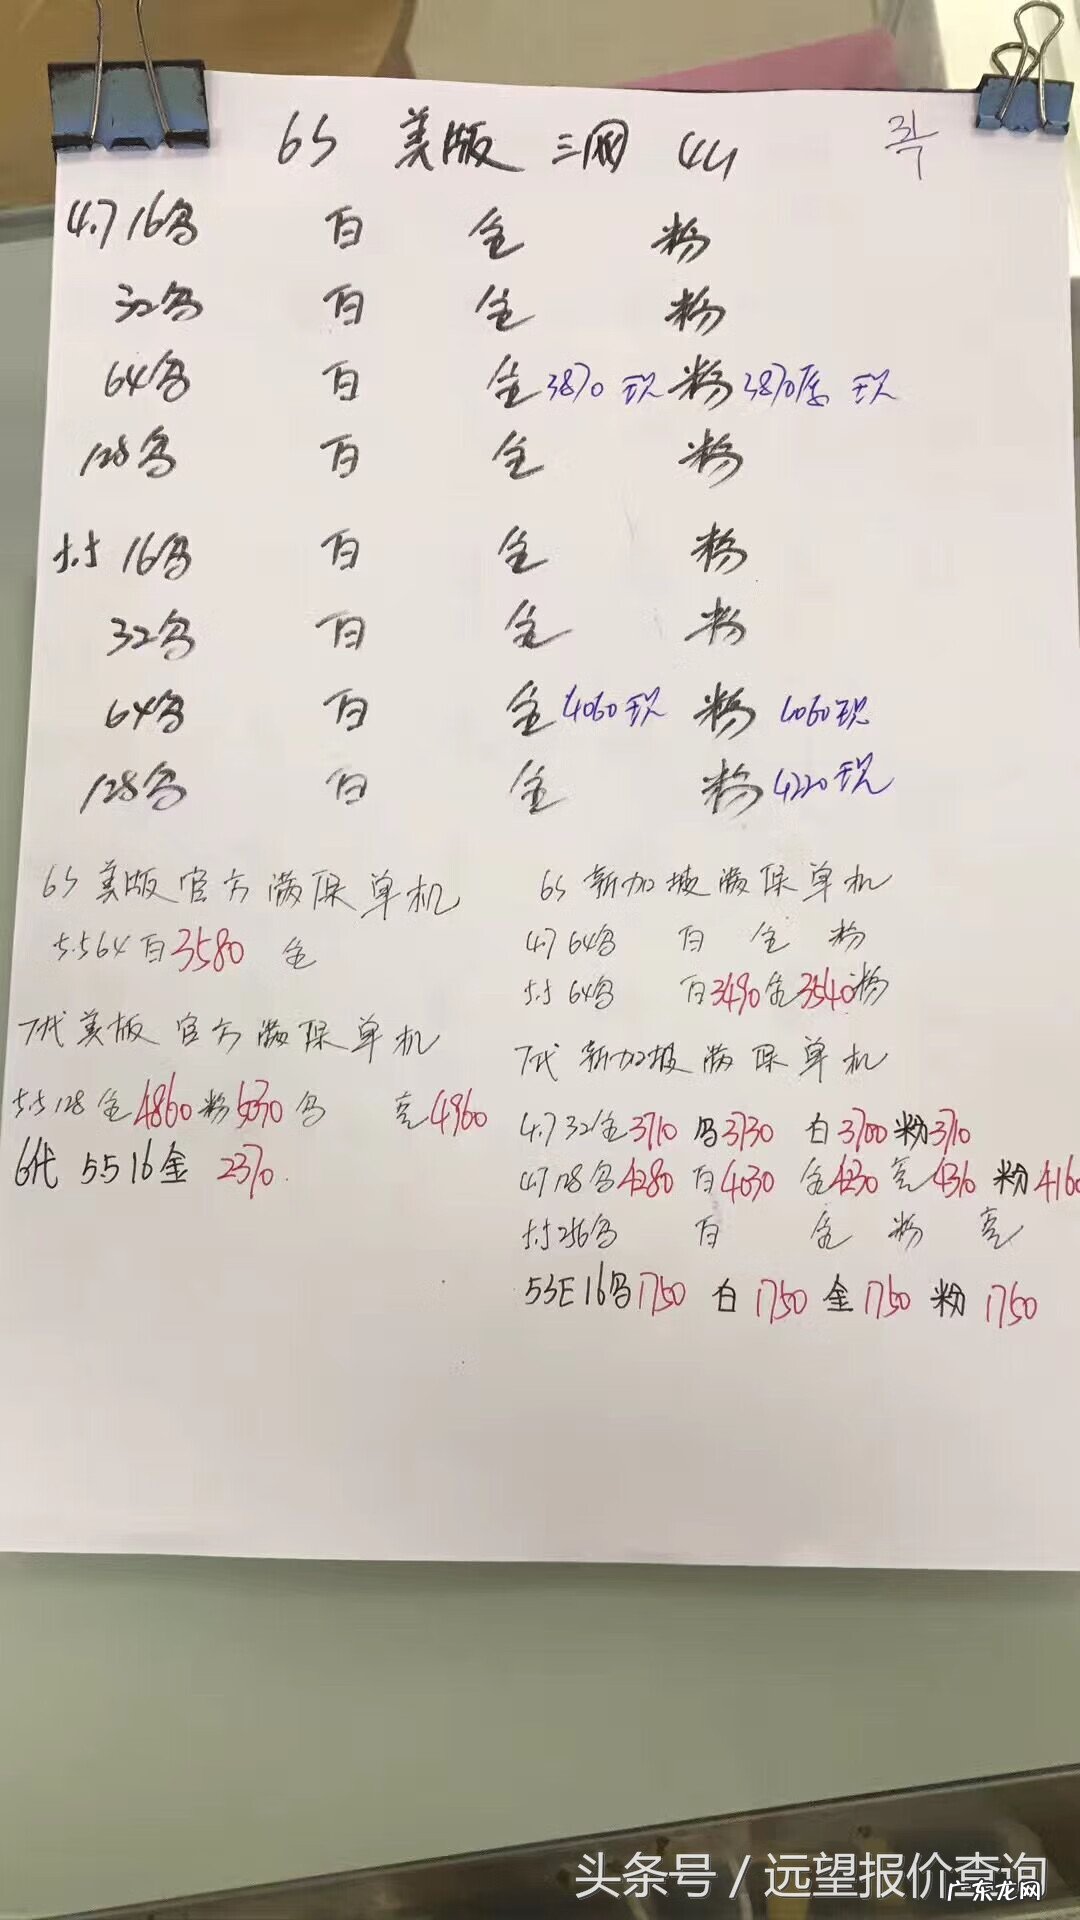 6S 美版 三网 4G
4.7 16G 白 金 粉
32G 白 金 粉
64G 白 金 3870 现 粉 3870 现
128G 白 金 粉
5.5 16G 白 金 粉
32G 白 金 粉
64G 白 金 4060 现 粉 4060 现
128G 白 金 粉 4220 现
6S 美版 官方 满保 单机
5.5 64 白 3580 金
7代 美版 官方 满保 单机
5.5 128 金 4860 粉 5030 乌 亮 4960
6代 5.5 16 金 2370
6S 新加坡 满保 单机
4.7 64G 白 金 粉
5.5 64G 白 3490 金 3540 粉
7代 新加坡 满保 单机
4.7 32 金 3710 乌 3730 白 3700 粉 3710
4.7 128 乌 4280 白 4030 金 4230 亮 4310 粉 4160
5.5 256 乌 白 金 粉 亮
5SE 16 乌 1750 白 1750 金 1750 粉 1750
头条号 / 远望报价查询
广东龙网